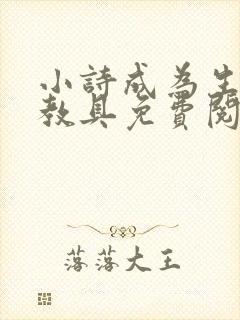 小詩成為生
教具免費閱
落落大王